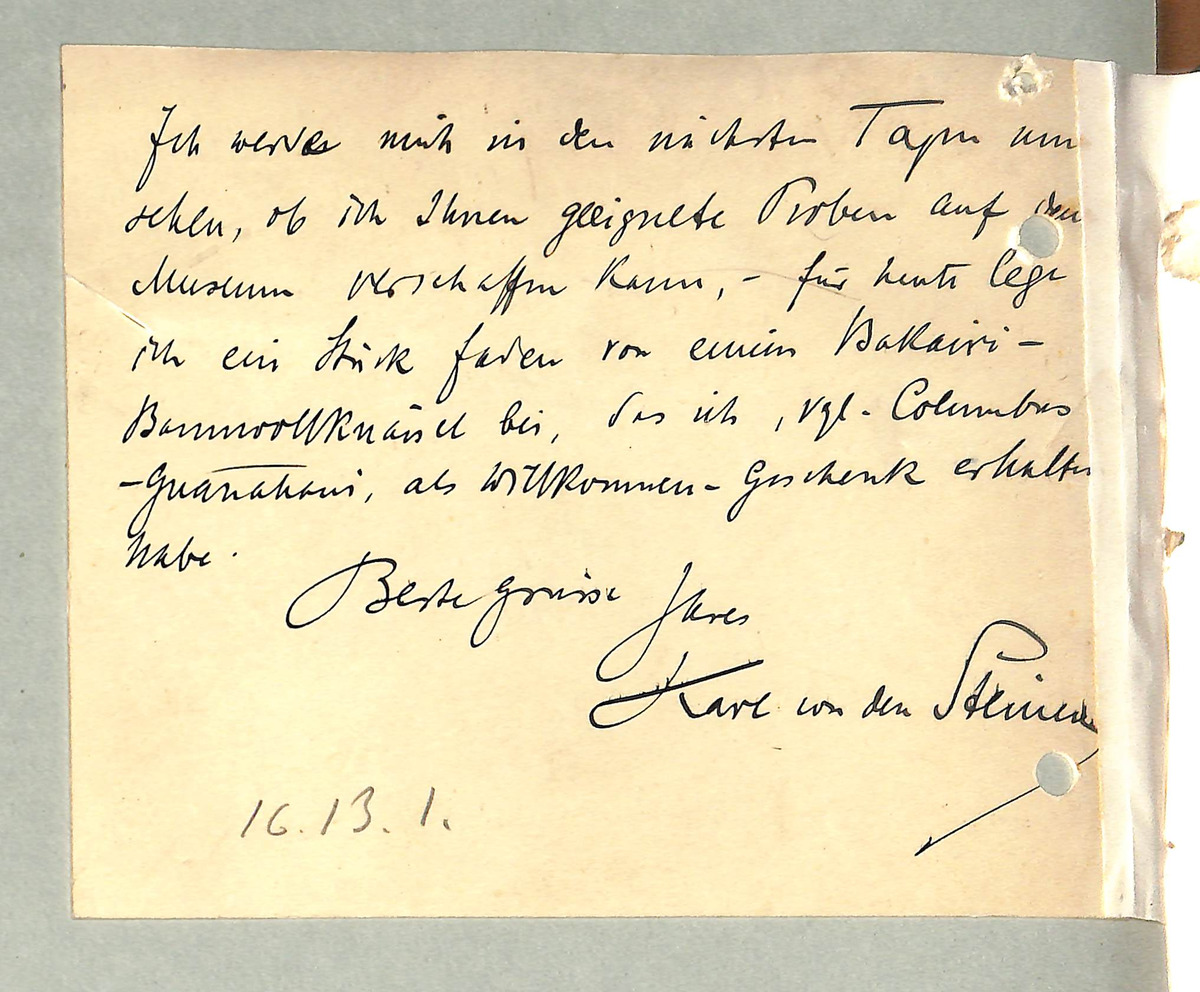 Ich werde mich in den nächsten Tagen um
sehen, ob ich Ihnen geeignete Proben auf dem
Museum verschaffen kann, – für heute lege
ich ein Stück Faden von einem Bakaïri –
Baumwollknäuel bei, das ich, vgl. Columbus
– Guanahani, als Willkommen – Geschenk erhalten
habe.
Beste Grüsse Ihres
Karl von den Steinen
16.13.1.